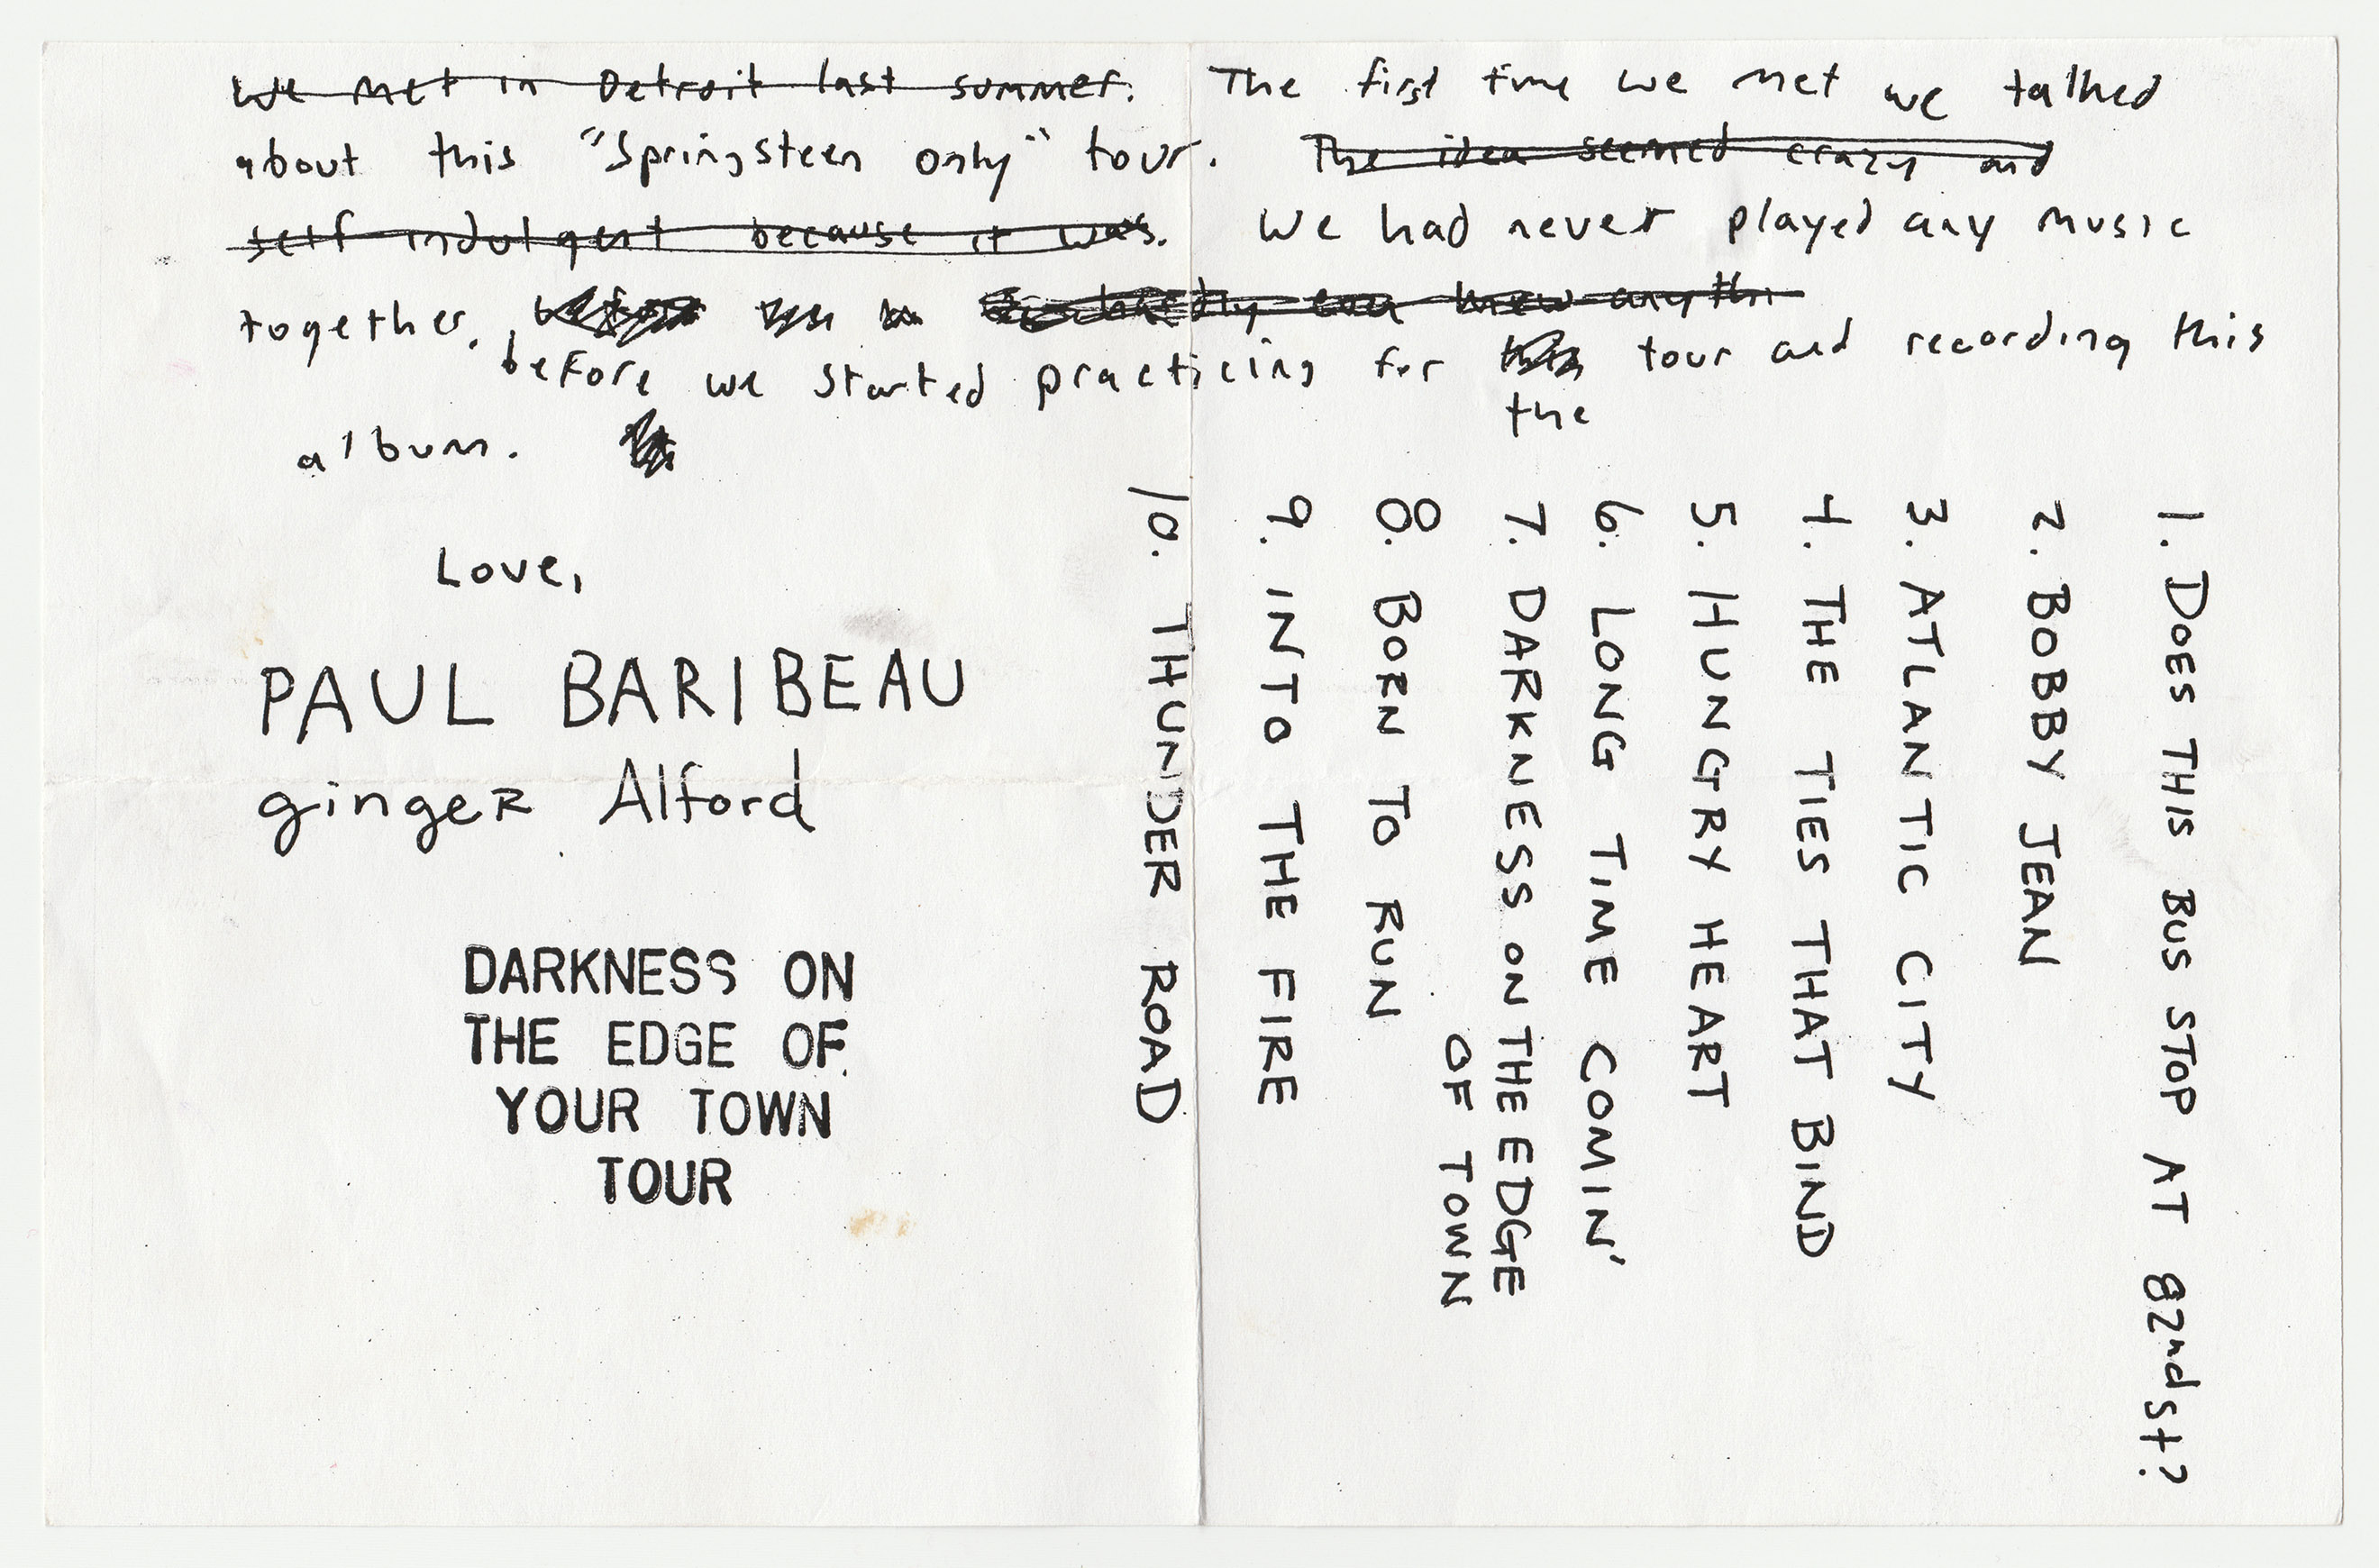 We met in Detroit last summer. The first time we met we talked
about this "Springsteen only" tour. The idea seemed crazy and
self indulgent because it was. We had never played any music
together. hardly even knew anythi
before we started practicing for tour and recording this
the
album.
Love,
PAUL BARIBEAU
ginger Alford
DARKNESS ON
THE EDGE OF
YOUR TOWN
TOUR
1. DOES THIS BUS STOP AT 82nd St?
2. BOBBY JEAN
3. ATLANTIC CITY
4. THE TIES THAT BIND
5. HUNGRY HEART
6. LONG TIME COMIN'
7. DARKNESS ON THE EDGE
OF TOWN
8. BORN TO RUN
9. INTO THE FIRE
10. THUNDER ROAD